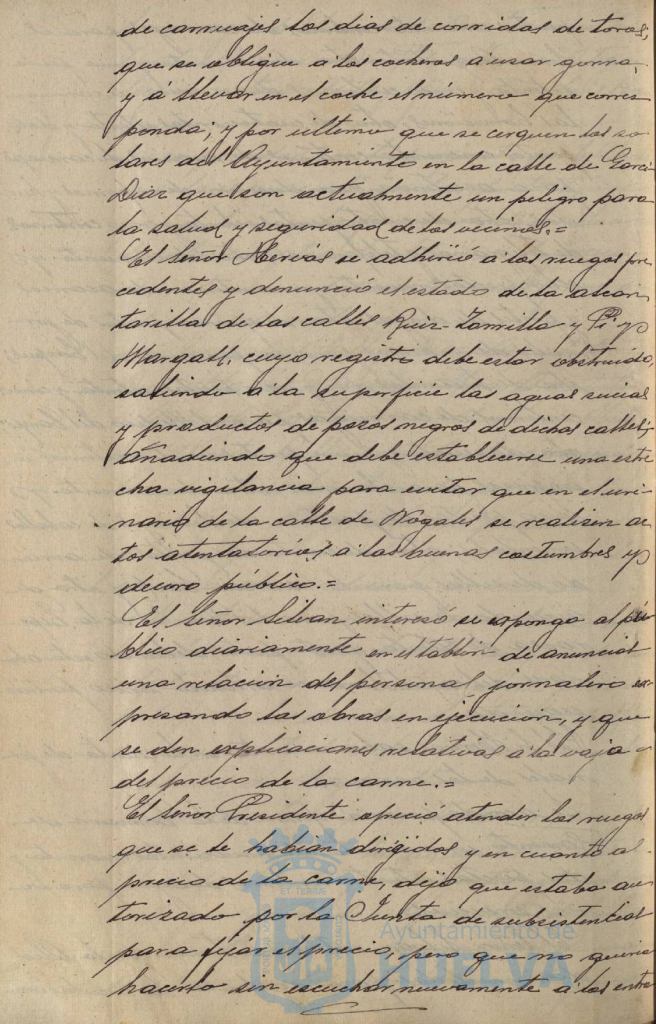 de carruajes los dias de corridas de toros;
que se obligue a los cocheros á usar gorra,
y á llevar en el coche el número que corres
ponda; y por ultimo que se cerquen los so
lares del Ayuntamiento en la calle de Garci
Diaz que son actualmente un peligro para
la salud y seguridad de los vecinos.=
El Señor Hervás se adhirió á los ruegos pre
cedentes y denunció el estado de la alcan
tarilla de las calles Ruiz-Zorrilla y Pi y
Margall, cuyo registro debe estar obstruido,
saliendo a la superficie las aguas sucias
y productos de pozos negros de dichas calles;
añadiendo que debe establecerse una estre
cha vigilancia para evitar que en el uri
nario de la calle de Nogales se realisen ac
tos atentatorios a las buenas costumbres y
decoro público.=
El Señor Silvan interesó se exponga al pú
blico diariamente en el tablón de anuncios
una relación del personal jornalero ex
presando las obras en ejecución, y que
se den explicaciones relativas a la vaja
del precio de la carne.=
El Señor Presidente ofreció atender los ruegos
que se le habian dirigidos y en cuanto al
precio de la carne, dijo que estaba au
torizado por la Junta de subsistencias
para fijar el precio, pero que no queria
hacerlo sin escuchar nuevamente a los entra
Ayuntamiento de
HUELVA